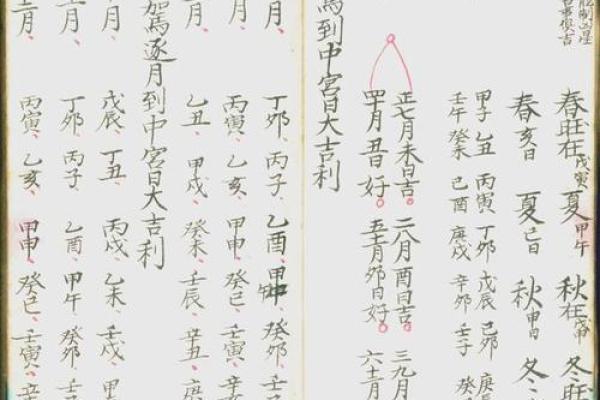 春旺在戊寅 夏甲午 秋在戊申 冬旺
春亥日 夏巳日 秋申日 冬
甲子 乙丑 丙寅 丁卯 戊辰 己卯 庚辰
壬午 癸未 己酉 庚戌 辛卯 壬子 癸
正七月未日吉 二八月酉日吉 三九月
四十月丑日好 五十一月卯日好 六十二月
馬到中宮日大吉利
月 丁卯 丙子 乙酉 甲午 癸卯 壬子
月 丙寅 乙亥 甲申 癸巳 壬寅 辛
月 乙丑 甲戌 癸未 壬辰 辛丑 庚
加馬逐月到中宮日大吉利
月 戊辰 丁丑 丙戌 乙未 壬戌 甲
月 丁卯 丙子 乙酉 甲午 癸卯 壬子
月 丙寅 乙亥 甲申 癸巳 壬寅 辛